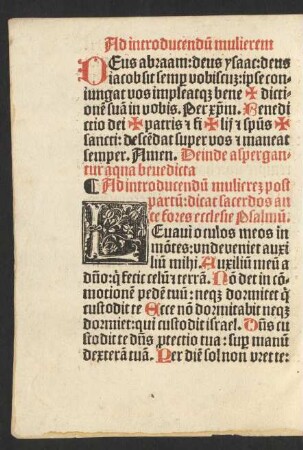 Ad introducendū mulierem
DEus abꝛaam: deus ysaac: deus
iacob sit semp vobiscuz: ipse con
iungat vos impleatqꝫ bene ✠ dicti-
onē suā in vobis. Per xp̄m. Benedi
ctio dei ✠ patris ⁊ fi ✠ lij ⁊ sp̄us ✠
sancti: descēdat super vos ⁊ maneat
semper. Amen. Deinde aspergan-
tur aqua benedicta
¶ Ad introducendū mulierez post
partū: dicat sacerdos an
te fores ecclesie Psalmū.
LEuaui oculos meos in
mōtes: vnde veniet auxi
liū mihi. Auxiliū meū a
dn̄o: q̄ fecit celū ⁊ terrā. Nō det in cō-
motionē pedē tuū: neqꝫ dormitet q̄
custodit te Ecce nō dormitabit neqꝫ
dormiet: qui custodit israel. Dn̄s cu
stodit te dn̄s ꝓtectio tua: suꝑ manū
dexterā tuā. Per diē sol non vret te: